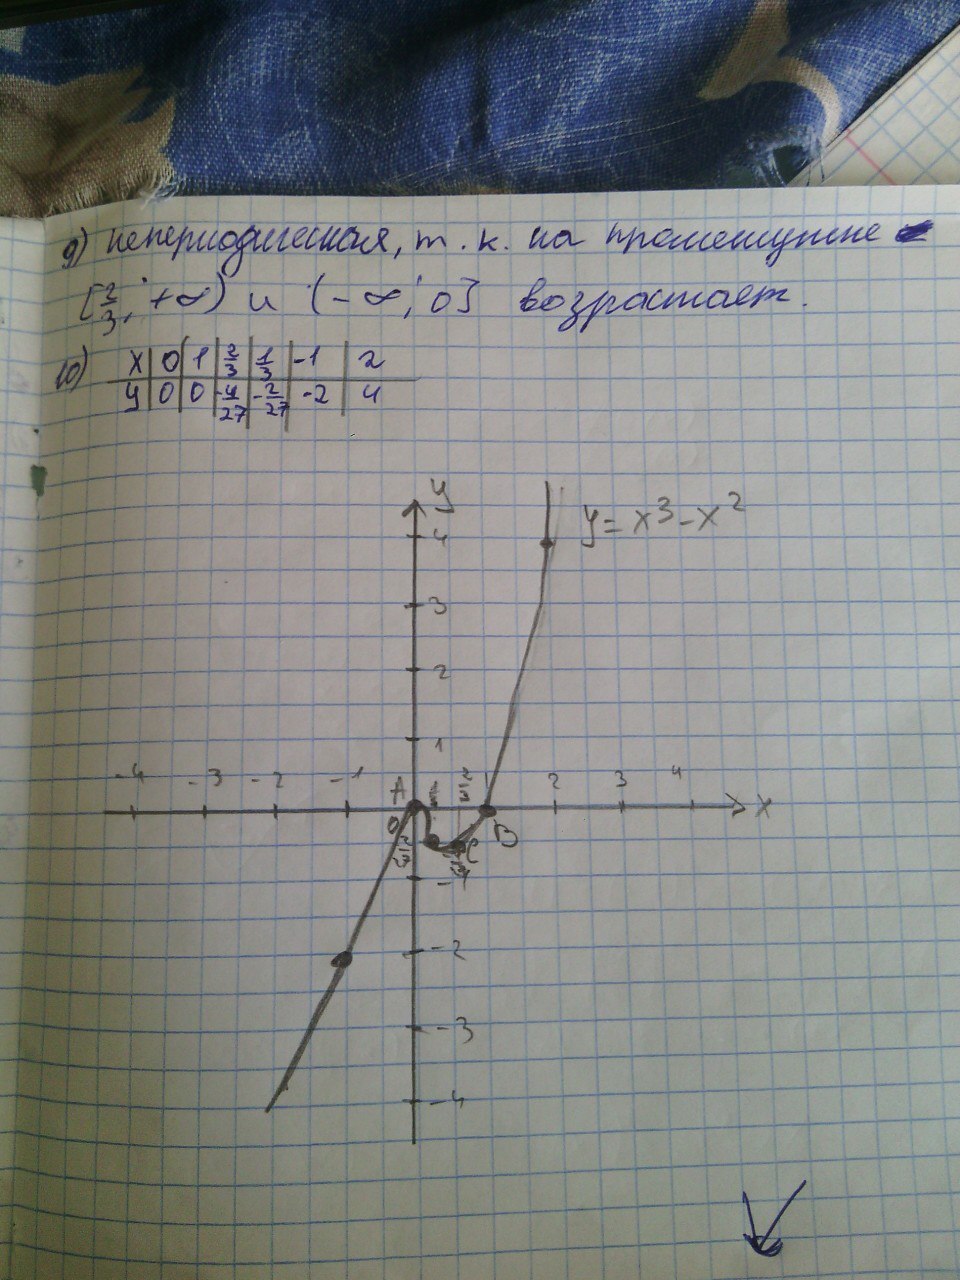 9) непериодическая, т.к. на промежутке
[2/3; +∞) и (-∞; 0] возрастает.
10) x | 0 | 1 | 2/3 | 1/3 | -1 | 2
y | 0 | 0 | -4/27 | -2/27 | -2 | 4
y
y = x³ - x²
4
3
2
1
-4 -3 -2 -1 A 2/3 1 2 3 4
0 B x
C
-2
-3
-4